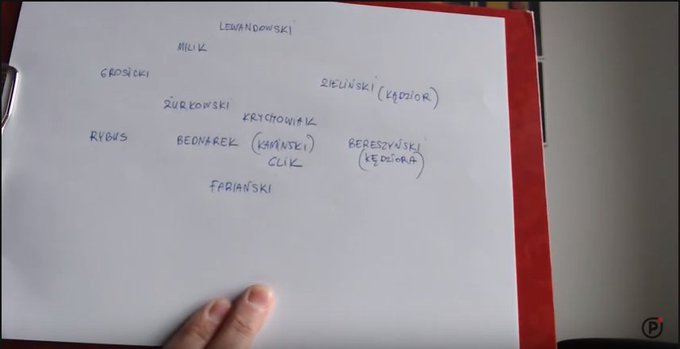 LEWANDOWSKI
MILIK
GROSICKI
ZIELIŃSKI (KĄDZIOR)
ŻURKOWSKI
KRYCHOWIAK
RYBUS BEDNAREK (KAMIŃSKI) BERESZYŃSKI
GLIK (KĘDZIORA)
FABIAŃSKI
P